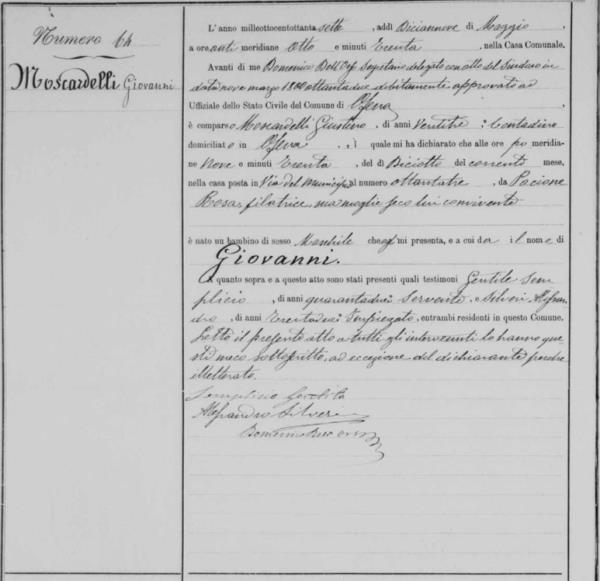 Numero 64
Moscardelli Giovanni
L'anno milleottocentottanta sette, addì Diciannove di Maggio,
a ore anti meridiane Otto e minuti Trenta, nella Casa Comunale.
Avanti di me Domenico Segretario delegato con atto del Sindaco in
data nove marzo 1800 ottantadue debitamente approvato
Uffiziale dello Stato Civile del Comune di Ofena,
è comparso Moscardelli Giustino, di anni Ventitre, Contadino
domiciliato in Ofena, il quale mi ha dichiarato che alle ore po meridia-
ne Nove e minuti Trenta, del dì Diciotto del corrente mese,
nella casa posta in Via del Municipio al numero ottantatre, da Pacione
Rosa, filatrice, sua moglie seco lui convivente
è nato un bambino di sesso Maschile che mi presenta, e a cui da il nome di
Giovanni.
A quanto sopra e a questo atto sono stati presenti quali testimoni Gentile Sem
plicio, di anni quarantadue, Servente, e Silveri Alessan
dro, di anni Impiegato, entrambi residenti in questo Comune.
Letto il presente atto a tutti gli intervenuti lo hanno que
sti meco sottoscritto, ad eccezione del dichiarante perchè
illetterato.
Semplicio Gentile
Alessandro Silveri
Domenico